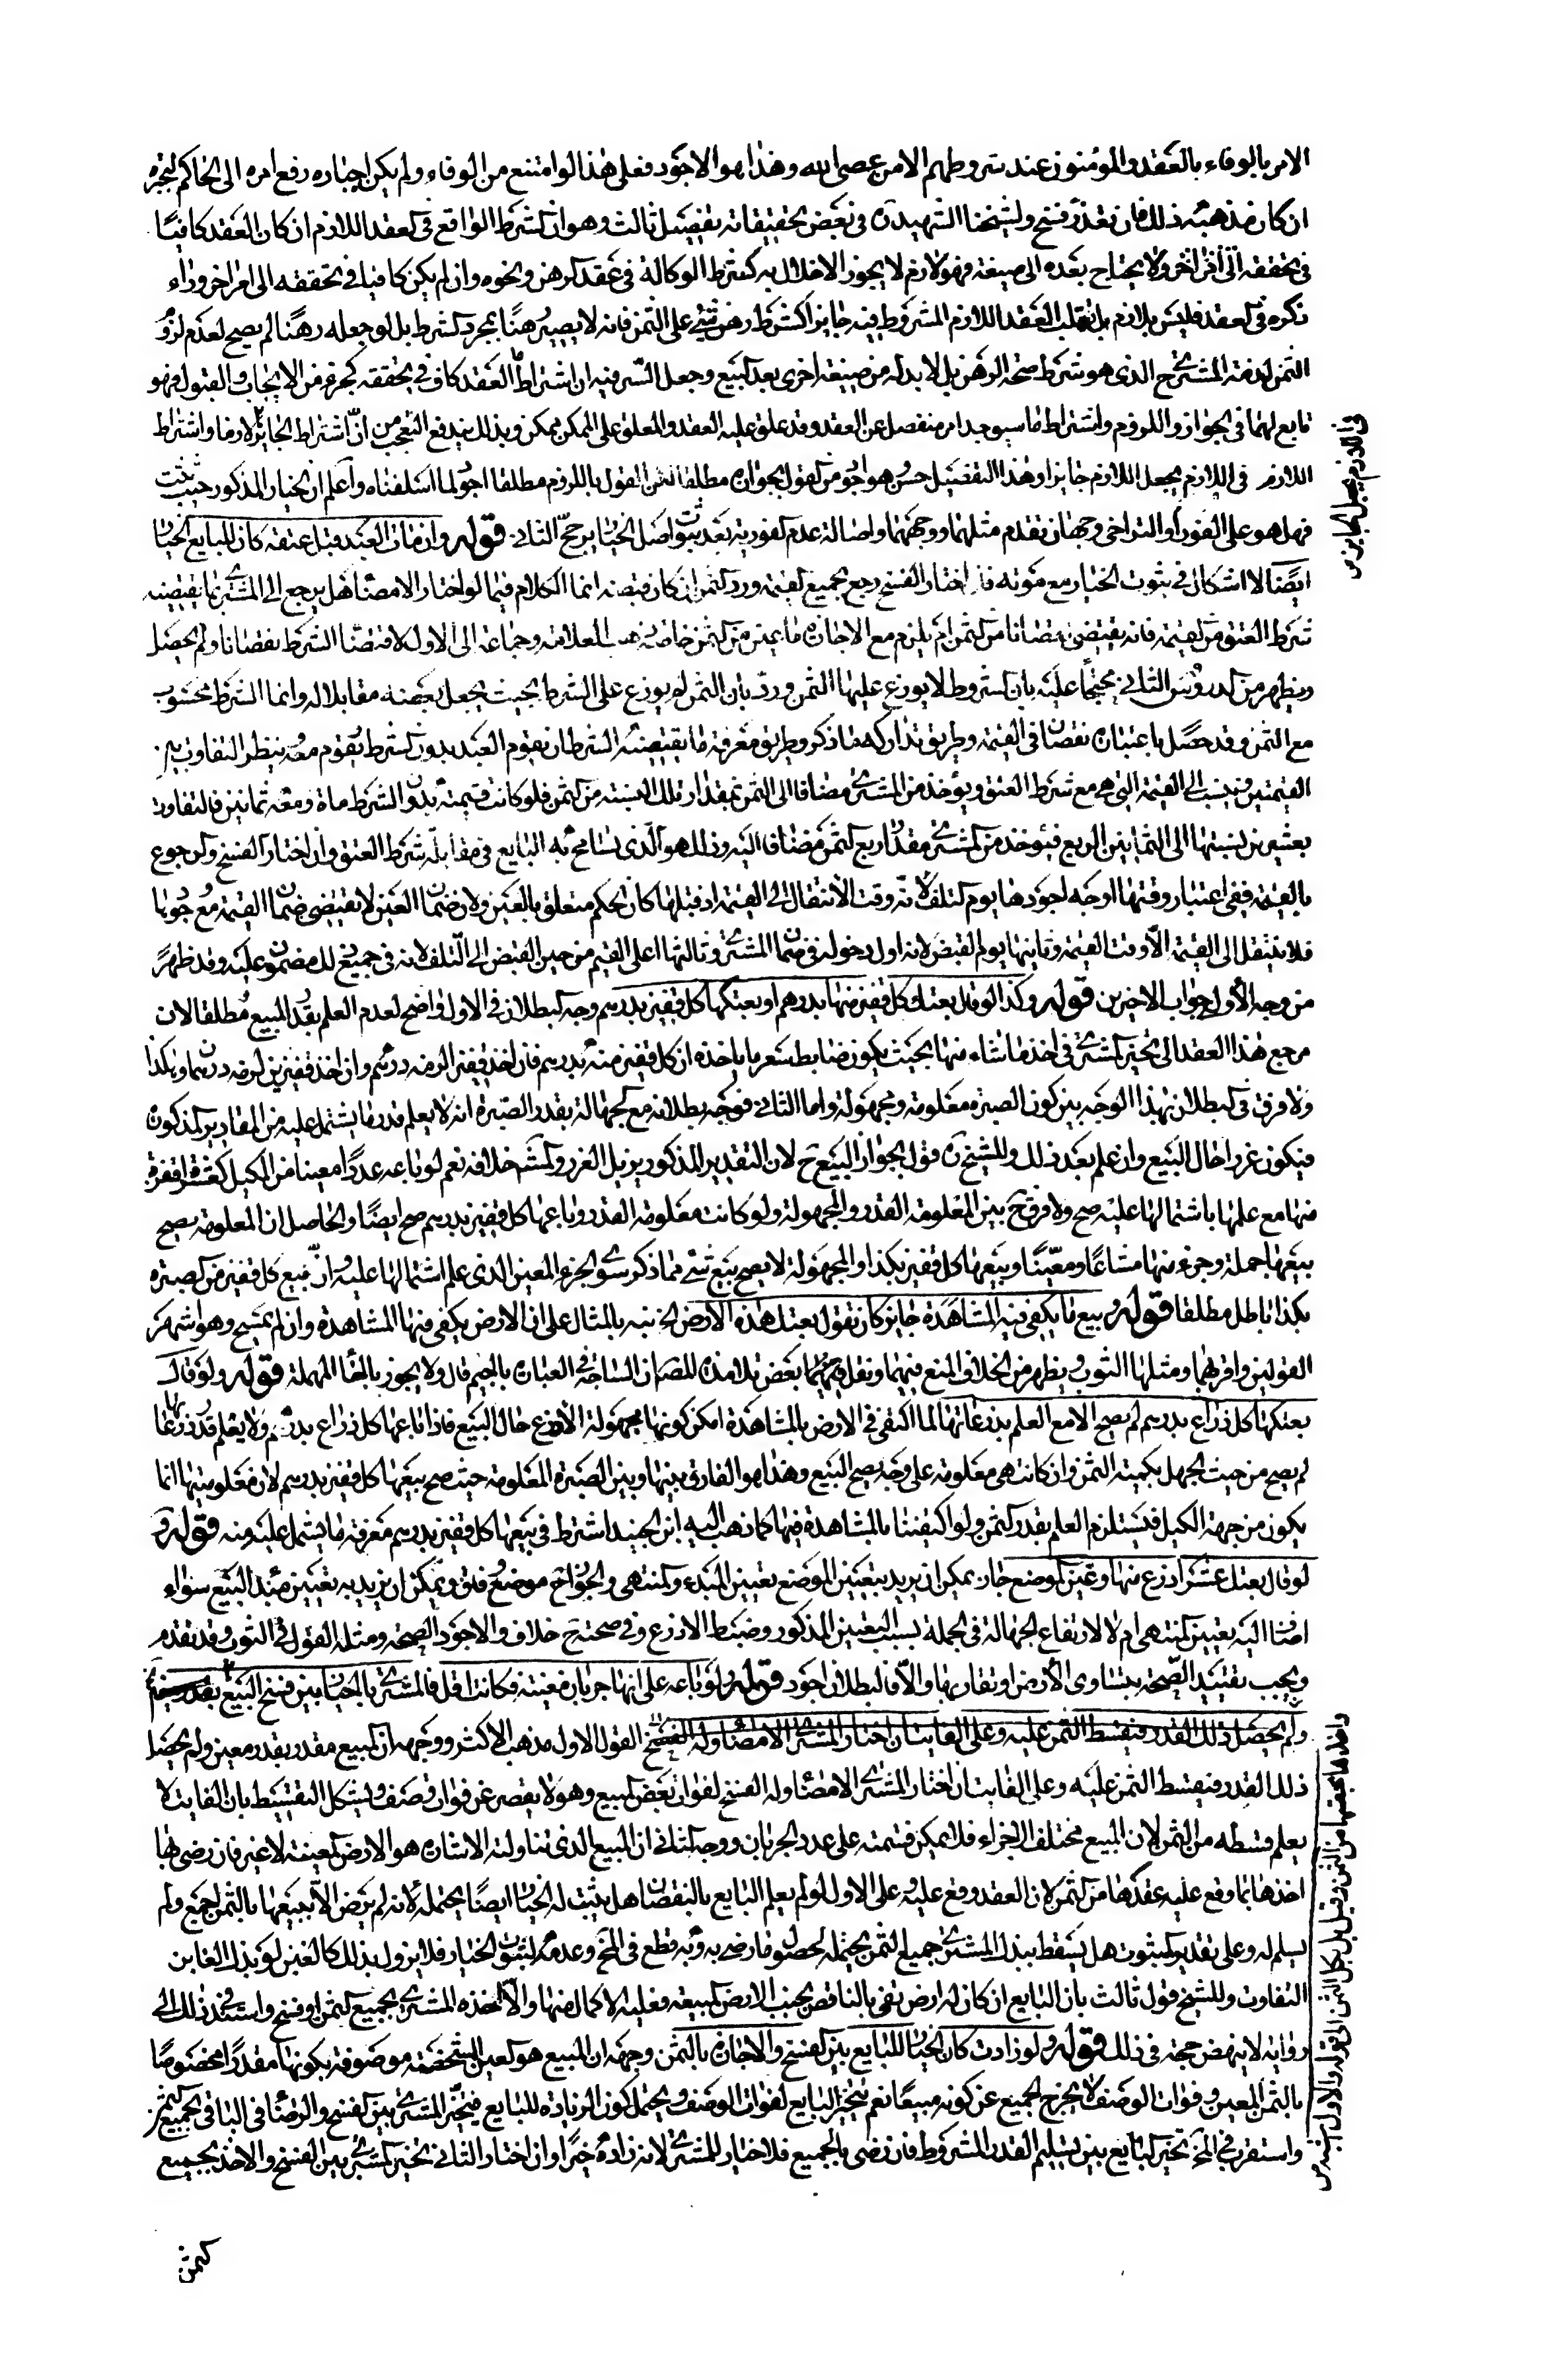 الامر بالوفاء بالعقد والمؤمنون عند شروطهم الا من عصى الله وهذا هو الاجود فعلى هذا لو امتنع من الوفاء ولم يكن اجباره رفع امره الى الحاكم ليجبره
ان كان مذهبه ذلك فان تعذر فسخ ولشيخنا الشهيد ره في بعض تحقيقاته تفصيل ثالث وهو ان الشرط الواقع في العقد اللازم ان كان العقد كافيا
في تحققه ولا يحتاج بعده الى صيغة فهو لازم لا يجوز الاخلال به كشرط الوكالة في عقد الرهن ونحوه وان لم يكن كافيا في تحققه الى امر اخر وراء
ذكره في العقد فليس بلازم بل يقلب العقد اللازم المشروط فيه جايزا كشرط رهن شيء على الثمن فانه لا يصير رهنا بمجرد الشرط بل لو جعله رهنا لم يصح لعدم لزوم
الثمن لذمة المشتري ح الذي هو شرط صحة الرهن بل لا بد له من صيغة اخرى بعد البيع وجعل السر فيه ان اشتراط ما العقد كاف في تحققه كجزء من الايجاب والقبول فهو
تابع لهما في الجواز واللزوم واشتراط ما سيوجد امر منفصل عن العقد وقد علق عليه العقد والمعلق على الممكن ممكن وبذلك يندفع التعجب من ان اشتراط الجايز لازما واشتراط
اللازم في اللازم يجعل اللازم جايزا وهذا التفصيل حسن هو اجود من القول بجوازه مطلقا لكن القول باللزوم مطلقا اجود لما اسلفناه واعلم ان الخيار المذكور حيث يثبت
فهل هو على الفور او التراخي وجهان تقدم مثلهما ووجههما واصالة عدم الفورية بعد ثبوت اصل الخيار يرجح الثاني قوله وان مات العبد قبل عتقه كان للبايع الخيار
ايضا لا اشكال في ثبوت الخيار مع موته فان اختار الفسخ رجع بجميع القيمة ورد الثمن ان كان قبضه انما الكلام فيما لو اختار الامضاء هل يرجع الى المشتري بما يقتضيه
شرط العتق من القيمة فانه يقتضي نقصانا من الثمن ام يلزم مع الاجازة ما عين من الثمن خاصة ذهب العلامة وجماعة الى الاول لاقتضاء الشرط نقصانا ولم يحصل
ويظهر من الدروس الثاني محتجا عليه بان الشروط لا يوزع عليها الثمن ورد بان الثمن لم يوزع على الشرط بحيث يجعل بعضه مقابلا له وانما الشرط محسوب
مع الثمن وقد حصل باعتباره نقصان في القيمة وطريق تداركه ما ذكر وطريق معرفة ما يقتضيه الشرط ان يقوم العبد بدون الشرط ويقوم معه وينظر التفاوت بين
القيمتين وينسب الى القيمة التي هي مع شرط العتق ويؤخذ من المشتري مضافا الى الثمن بمقدار تلك النسبة من الثمن فلو كانت قيمته بدون الشرط ماة ومعه ثمانين فالتفاوت
بعشرين نسبتها الى الثمانين الربع فيؤخذ من المشتري مقدار ربع الثمن مضافا اليه وذلك هو الذي سامح به البايع في مقابلة شرط العتق وان اختار الفسخ والرجوع
بالقيمة ففي اعتبار وقتها اوجه اجودها يوم التلف لانه وقت الانتقال الى القيمة اذ قبلها كان الحكم متعلق بالعين ولان ضمان العين لا يقتضي ضمان القيمة مع وجودها
فلا ينتقل الى القيمة الا وقت القيمة وثانيها يوم القبض لانه اول دخوله في ضمان المشتري وثالثها اعلى القيم من حين القبض الى التلف لانه في جميع ذلك مضمون عليه وقد ظهر
من وجه الاول جواب الاخيرين قوله وكذا لو قال بعتك كل قفيز منها بدرهم او بعتكها كل قفيز بدرهم وجه البطلان في الاول واضح لعدم العلم بقدر المبيع مطلقا لان
مرجع هذا العقد الى تخيير المشتري في اخذ ما شاء منها بحيث يكون ضابط سعر ما ياخذه ان كل قفيز منه بدرهم فان اخذ قفيزا لزمه درهم وان اخذ قفيزين لزمه درهمان وهكذا
ولا فرق في البطلان بهذا الوجه بين كون الصبرة معلومة ومجهولة واما الثاني فوجه بطلانه مع الجهالة بقدر الصبرة انه لا يعلم قدر ما يشتمل عليه من المقادير المذكورة
فيكون غررا حال البيع وان علم بعد ذلك وللشيخ ره قول بجواز البيع ح لان التقدير المذكور يزيل الغرر والاشهر خلافه نعم لو باعه عددا معينا من الكيل كعشرة اقفزة
منها مع علمها باشتمالها عليه صح ولا فرق ح بين المعلومة القدر والمجهولة ولو كانت معلومة القدر وباعها كل قفيز بدرهم صح ايضا والحاصل ان المعلومة يصح
بيعها جملة وجزء منها مشاعا ومعينا وبيعها كل قفيز بكذا والمجهولة لا يصح بيع شيء مما ذكر سوى الجزء المعين الذي علم اشتمالها عليه وان بيع كل قفيز من الصبرة
بكذا باطل مطلقا قوله وبيع ما يكفي فيه المشاهدة جايز كان تقول بعتك هذه الارض الخ نبه بالمثال على ان الارض يكفي فيها المشاهدة وان لم تمسح وهو اشهر
القولين واقربهما ومثلها الثوب ويظهر من الخلاف المنع فيهما ونقل بعض تلامذة المصـ ان الساجة في العبارة بالجيم قال ولا يجوز بالحاء المهملة قوله ولو قال
بعتكها كل ذراع بدرهم لم يصح الا مع العلم بذرعانها لما اكتفى في الارض بالمشاهدة امكن كونها مجهولة الاذرع حال البيع فاذا باعها كل ذراع بدرهم ولا يعلم قدر ذرعانها
لم يصح من حيث الجهل بكمية الثمن وان كانت هي معلومة على وجه يصح البيع وهذا هو الفارق بينها وبين الصبرة المعلومة حيث صح بيعها كل قفيز بدرهم لان معلوميتها انما
يكون من جهة الكيل فيستلزم العلم بقدر الثمن ولو اكتفينا بالمشاهدة فيها كما ذهب اليه ابن الجنيد اشترط في بيعها كل قفيز بدرهم معرفة ما يشتمل عليه منه قوله و
لو قال بعتك عشر اذرع منها وعين الموضع جاز يمكن ان يريد بتعيين الموضع تعيين المبدء والمنتهى والجواز ح موضع وفاق ويمكن ان يريد به تعيين مبدا البيع سواء
اضاف اليه تعيين المنتهى ام لا لارتفاع الجهالة في الجملة بسبب التعيين المذكور وضبط الاذرع وفي صحته ح خلاف والاجود الصحة ومثله القول في الثوب وقد تقدم
ويجب تقييد الصحة بتساوي الارض او تقاربها والا فالبطلان اجود قوله ولو باعه على انها جربان معينة فكانت اقل فالمشتري بالخيار بين فسخ البيع
ولم يحصل ذلك القدر فيقسط الثمن عليه وعلى الفايت ان اختار المشتري الامضاء وله الفسخ القول الاول مذهب الاكثر ووجهه ان المبيع مقدر بقدر معين ولم يحصل
ذلك القدر فيقسط الثمن عليه وعلى الفايت ان اختار المشتري الامضاء وله الفسخ لفوات بعض المبيع وهو لا يقصر عن فوات وصف ويشكل التقسيط بان الفايت لا
يعلم قسطه من الثمن لان المبيع مختلف الاجزاء فلا يمكن قسمته على عدد الجربان ووجه الثاني ان المبيع الذي تناولته الاشارة هو الارض المعينة لا غير فان رضى بها
اخذها بما وقع عليه عقدها من الثمن لان العقد وقع عليه وعلى الاول لو لم يعلم البايع بالنقصان هل يثبت له الخيار ايضا يحتمله لانه لم يرض الا ببيعها بالثمن اجمع ولم
يسلم له وعلى تقدير الثبوت هل يسقط ببذل المشتري جميع الثمن يحتمله لحصول ما رضى به وبه قطع في التحرير وعدمه لثبوت الخيار فلا يزول بذلك كالغبن لو بذل الغابن
التفاوت وللشيخ قول ثالث بان البايع ان كان له ارض تفي بالناقص بجنب الارض المبيعة فعليه الاكمال منها والا اخذه المشتري بجميع الثمن او فسخ واستند في ذلك الى
رواية لا ينهض حجة في ذلك قوله ولو زادت كان الخيار للبايع بين الفسخ والاجازة بالثمن وجهه ان المبيع هو العين الشخصية موصوفة بكونها مقدرا مخصوصا
بالثمن المعين وفوات الوصف لا يخرج الجميع عن كونه مبيعا نعم يتخير البايع لفوات الوصف ويحتمل كون الزيادة للبايع فيتخير المشتري بين الفسخ والرضا في الباقي بجميع الثمن
واستقرب في التحرير تخير البايع بين تسليم القدر المشروط فان رضى بالجميع فلا خيار للمشتري لانه زاده خيرا وان اختار الثاني تخير المشتري بين الفسخ والاخذ بجميع
الثمن